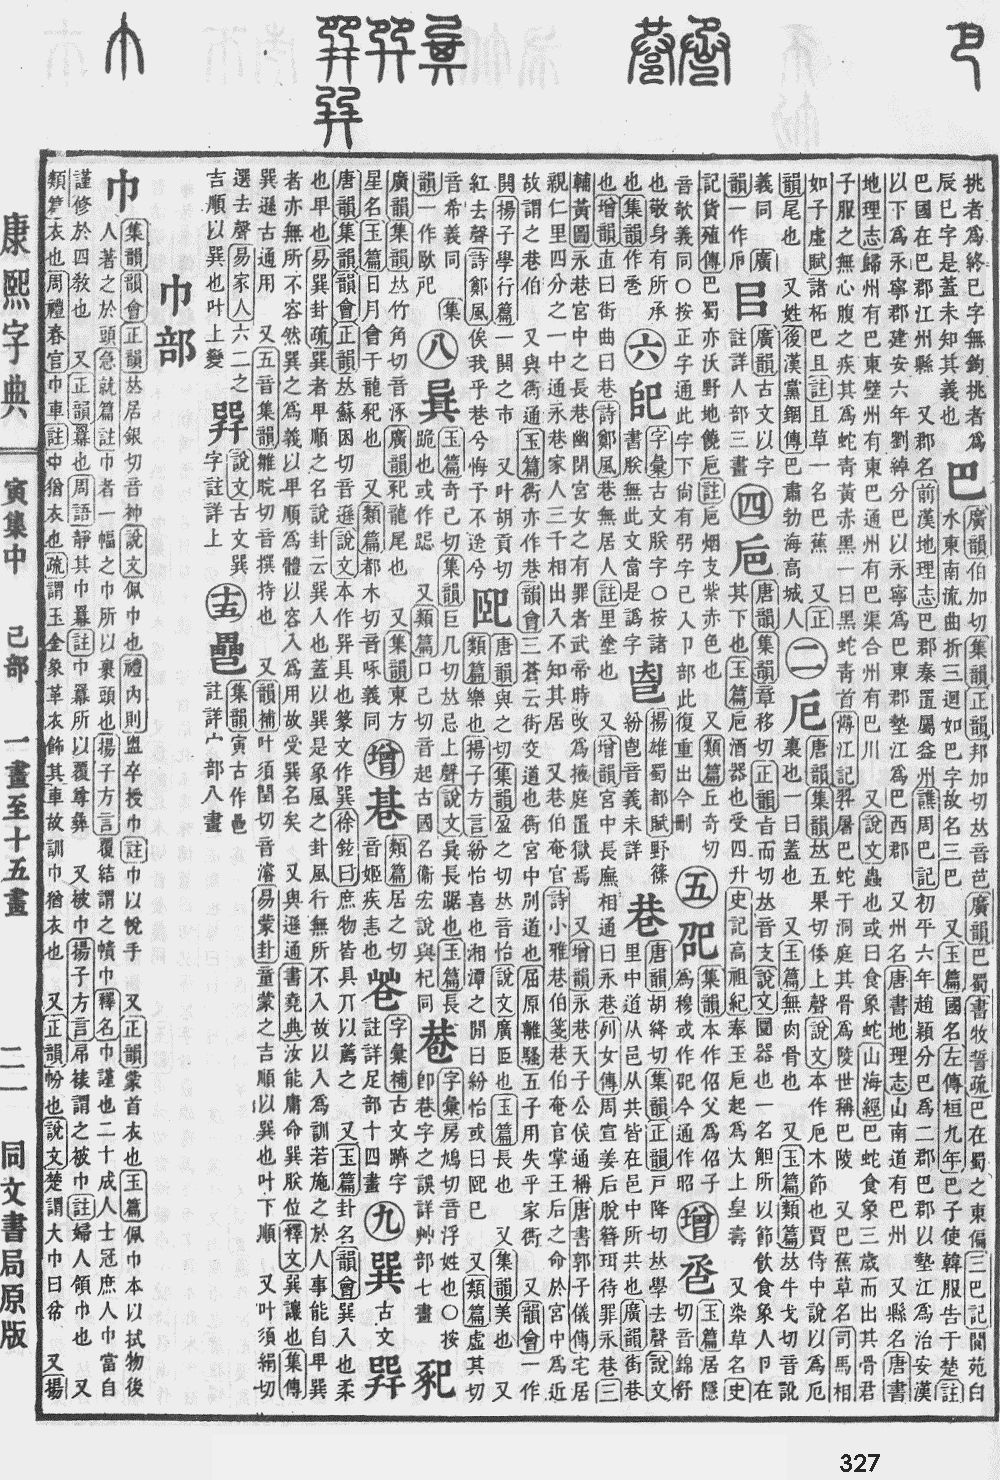 挑者爲終已字無鉤挑者爲
辰巳字是蓋未知其義也
巴
廣韻伯加切集韻正韻邦加切𠀤音芭廣韻巴蜀書牧誓疏巴在蜀之東偏三巴記閬苑白
水東南流曲折三迴如巴字故名三巴 又玉篇國名左傳桓九年巴子使韓服告于楚註
巴國在巴郡江州縣 又郡名前漢地理志巴郡秦置屬益州譙周巴記初平六年趙穎分巴爲二郡巴郡以墊江爲治安漢
以下爲永寧郡建安六年劉綽分巴以永寧爲巴東郡墊江爲巴西郡 又州名唐書地理志山南道有巴州 又縣名唐書
地理志歸州有巴東壁州有東巴通州有巴渠合州有巴川 又說文蟲也或曰食象蛇山海經巴蛇食象三歲而出其骨君
子服之無心腹之疾其爲蛇靑黃赤黑一曰黑蛇靑首潯江記羿屠巴蛇于洞庭其骨爲陵世稱巴陵 又巴蕉草名司馬相
如子虛賦諸柘巴且註且草一名巴蕉 又正
韻尾也 又姓後漢黨錮傳巴肅勃海高城人
二
厄
唐韻集韻𠀤五果切倭上聲說文本作厄木節也賈侍中說以爲厄
裹也一曰蓋也 又玉篇無肉骨也 又玉篇類篇𠀤牛戈切音訛
義同 廣
韻一作戹
㠯
廣韻古文以字
註詳人部三畫
四
巵
唐韻集韻章移切正韻旨而切𠀤音支說文圜器也一名觛所以節飮食象人卪在
其下也玉篇巵酒器也受四升史記高祖紀奉玉巵起爲大上皇壽 又染草名史
記貨殖傳巴蜀亦沃野地饒巵註巵烟支紫赤色也 又類篇丘奇切
音欹義同○按正字通此字下尙有弜字已入卩部此復重出今刪
五
集韻本作佋父爲佋子
爲穆或作 今通作昭
增
玉篇居隱
切音綿舒
也敬身有所承
也集韻作卺
六
字彙古文朕字○按諸
書朕無此文當是譌字
揚雄蜀都賦野篠
紛 音義未詳
巷
唐韻胡絳切集韻正韻戸降切𠀤學去聲說文
里中道从邑从共皆在邑中所共也廣韻街巷
也增韻直曰街曲曰巷詩鄭風巷無居人註里塗也 又增韻宮中長廡相通曰永巷列女傳周宣姜后脫簪珥待罪永巷三
輔黃圖永巷宮中之長巷幽閉宮女之有罪者武帝時改爲掖庭置獄焉 又增韻永巷天子公侯通稱唐書郭子儀傳宅居
親仁里四分之一中通永巷家人三千相出入不知其居 又巷伯奄官詩小雅巷伯箋巷伯奄官掌王后之命於宮中爲近
故謂之巷伯 又與衖通玉篇衖亦作巷韻會三蒼云街交道也衖宮中別道也屈原離騷五子用失乎家衖 又韻會一作
閧揚子學行篇一閧之市 又叶胡貢切
紅去聲詩鄭風俟我乎巷兮悔予不送兮
巸
唐韻與之切集韻盈之切𠀤音怡說文廣臣也玉篇長也 又集韻美也 又
類篇樂也揚子方言紛怡喜也湘潭之閒曰紛怡或曰巸巳 又類篇虛其切
音希義同 集
韻一作戺
八
㠱
玉篇奇己切集韻巨几切𠀤忌上聲說文㠱長踞也玉篇長
跪也或作跽 又類篇口己切音起古國名衞宏說與杞同
巷
字彙房鳩切音浮姓也○按
卽巷字之誤詳艸部七畫
廣韻集韻𠀤竹角切音涿廣韻 龍尾也 又集韻東方
星名玉篇日月會于龍 也 又類篇都木切音啄義同
增
類篇居之切
音姬疾恚也
字彙補古文躋字
註詳足部十四畫
九
巽
古文
唐韻集韻韻會正韻𠀤蘇困切音遜說文本作 具也篆文作巽徐鉉曰庶物皆具丌以薦之 又玉篇卦名韻會巽入也柔
也卑也易巽卦疏巽者卑順之名說卦云巽入也蓋以巽是象風之卦風行無所不入故以入爲訓若施之於人事能自卑巽
者亦無所不容然巽之爲義以卑順爲體以容入爲用故受巽名矣 又與遜通書堯典汝能庸命巽朕位釋文巽讓也集傳
巽遜古通用 又五音集韻雛睆切音撰持也 又韻補叶須閏切音濬易蒙卦童蒙之吉順以巽也叶下順 又叶須絹切
選去聲易家人六二之
吉順以巽也叶上變
說文古文巽
字註詳上
十五
集韻寅古作
註詳宀部八畫
巾部
巾
集韻韻會正韻𠀤居銀切音神說文佩巾也禮內則盥卒授巾註巾以帨手 又正韻蒙首衣也玉篇佩巾本以拭物後
人著之於頭急就篇註巾者一幅之巾所以裹頭也揚子方言覆結謂之幘巾釋名巾謹也二十成人士冠庶人巾當自
謹修於四敎也 又正韻冪也周語靜其巾冪註巾冪所以覆尊彝 又被巾揚子方言扇裱謂之被巾註婦人領巾也 又
類篇衣也周禮春官巾車註巾猶衣也疏謂玉金象革衣飾其車故訓巾猶衣也 又正韻帉也說文楚謂大巾曰帉 又揚
康熙字典
寅集中
己部
一畫至十五畫
二一
同文書局原版
327